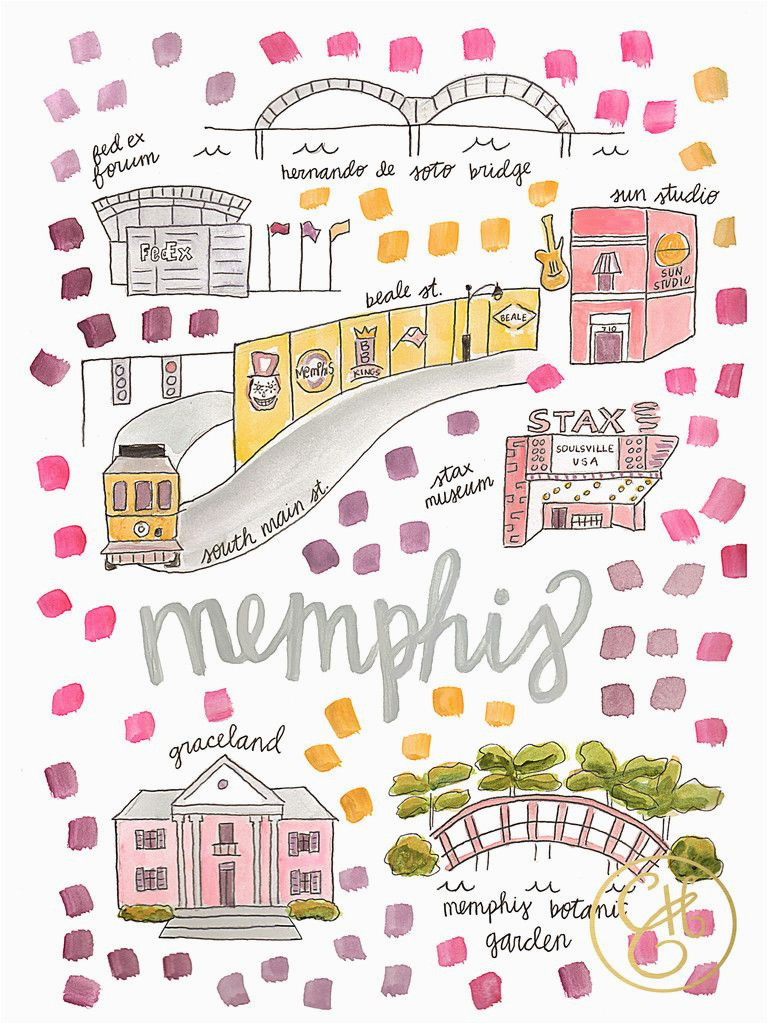 hernando de soto bridge
fed ex
forum
FedEx
sun studio
SUN
STUDIO
710
beale st.
BEALE
Memphis
BB
KINGS
south main st.
STAX
SOULSVILLE
USA
stax
museum
memphis
graceland
memphis botanic
garden